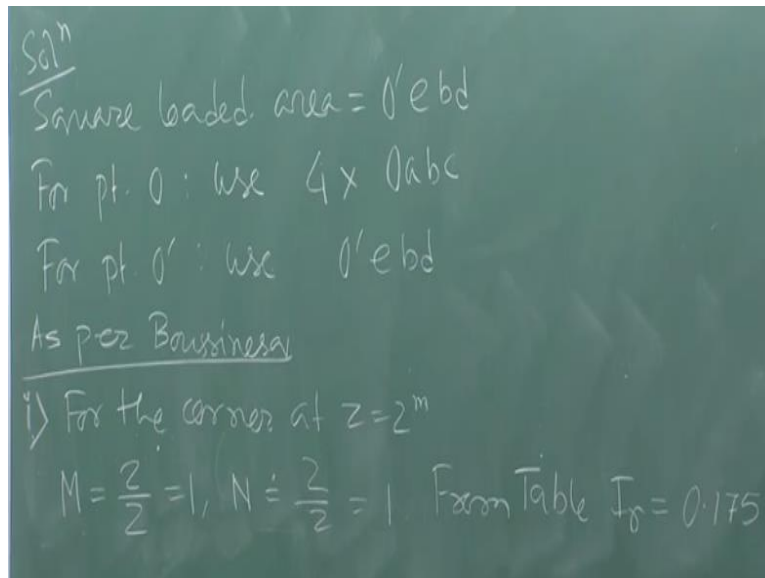 Solⁿ
Square loaded area = O'ebd
For pt. O : use 4 x Oabc
For pt. O' : use O'ebd
As per Boussinesq
i) For the corner at z=2ᵐ
M = 2/2 = 1, N = 2/2 = 1 From Table Iσ = 0.175